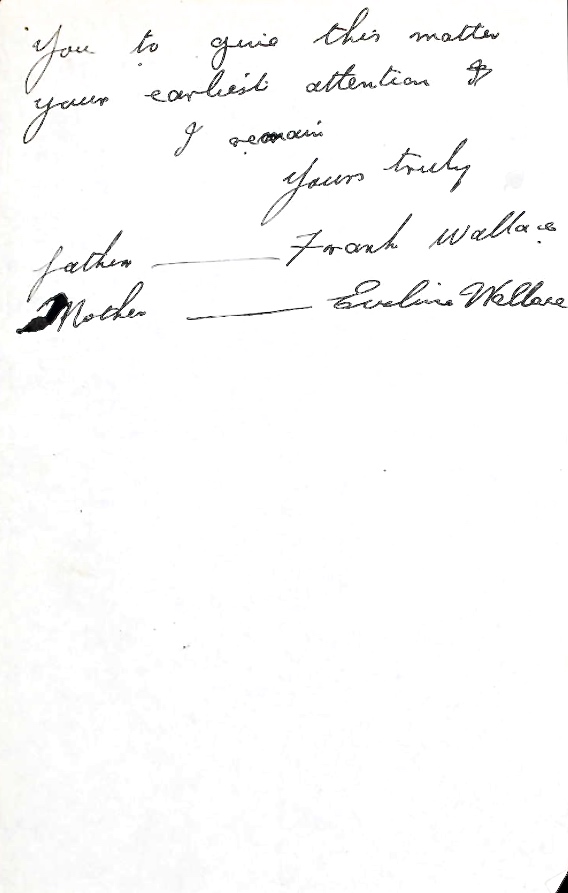 you to give this matter
your earliest attention &
I remain
Yours truly
father — Frank Wallace
Mother — Eveline Wallace